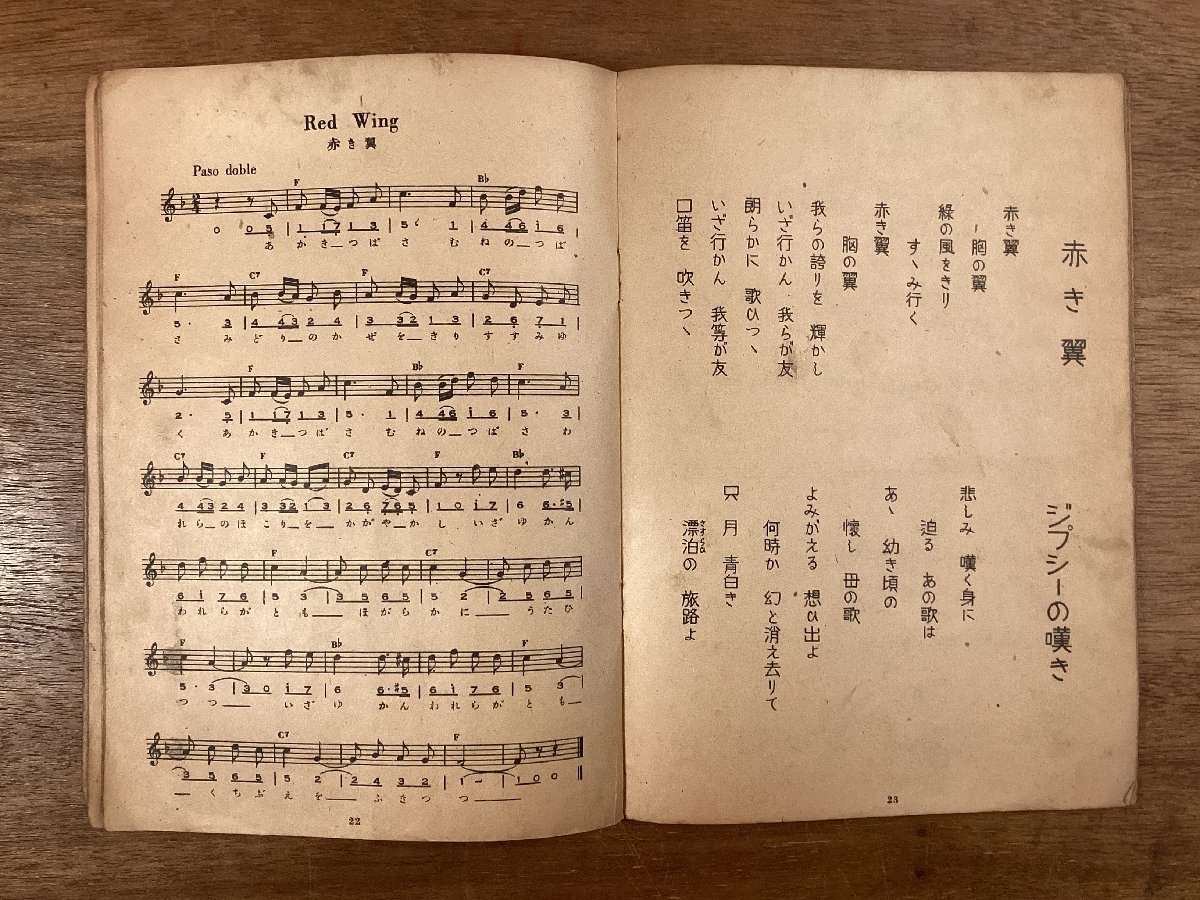 Red Wing
赤き翼
Paso doble
F B♭
0 0 5 | 1 1 7 1 3 | 5 · 1 | 4 4 6 i 6
あかき—つばさ むねの—つば
F C7 F C7
5 · 3 | 4 4 3 2 4 | 3 3 2 1 3 | 2 6 7 1
さ みどり—のか ぜを—きり すすみゆ
F B♭ F
2 · 5 | 1 1 7 1 3 | 5 · 1 | 4 4 6 i 6 | 5 · 3
く あかき—つば さ む ねの—つば さ わ
C7 F C7 F B♭
4 4 3 2 4 | 3 3 2 1 3 | 2 6 7 6 5 | 1 0 i 7 | 6 6 · #5
れら—のほ こり—を— かがや—か し いざ ゆ かん
F C7
6 i 7 6 | 5 3 | 3 5 6 5 | 5 2 | 2 5 6 5
われらが と も— ほがら かに— うたひ
F B♭ F
5 · 3 | 3 0 i 7 | 6 6 · #5 | 6 i 7 6 | 5 3
つ つ— いざ ゆ かん われらが と も
C7 F
3 5 6 5 | 5 2 | 2 4 3 2 | 1 – | 1 0 0
— くちぶ え を— ふきつ つ—
22
赤き翼
赤き翼
胸の翼
緑の風をきり
すゝみ行く
赤き翼
胸の翼
我らの誇りを 輝かし
いざ行かん 我らが友
朗らかに 歌ひつゝ
いざ行かん 我等が友
口笛を 吹きつゝ
ジプシーの嘆き
悲しみ 嘆く身に
迫る あの歌は
あゝ 幼き頃の
懐し 母の歌
よみがえる 想ひ出よ
何時か 幻と消え去りて
只 月 青白き
漂泊の 旅路よ
さすらい
23